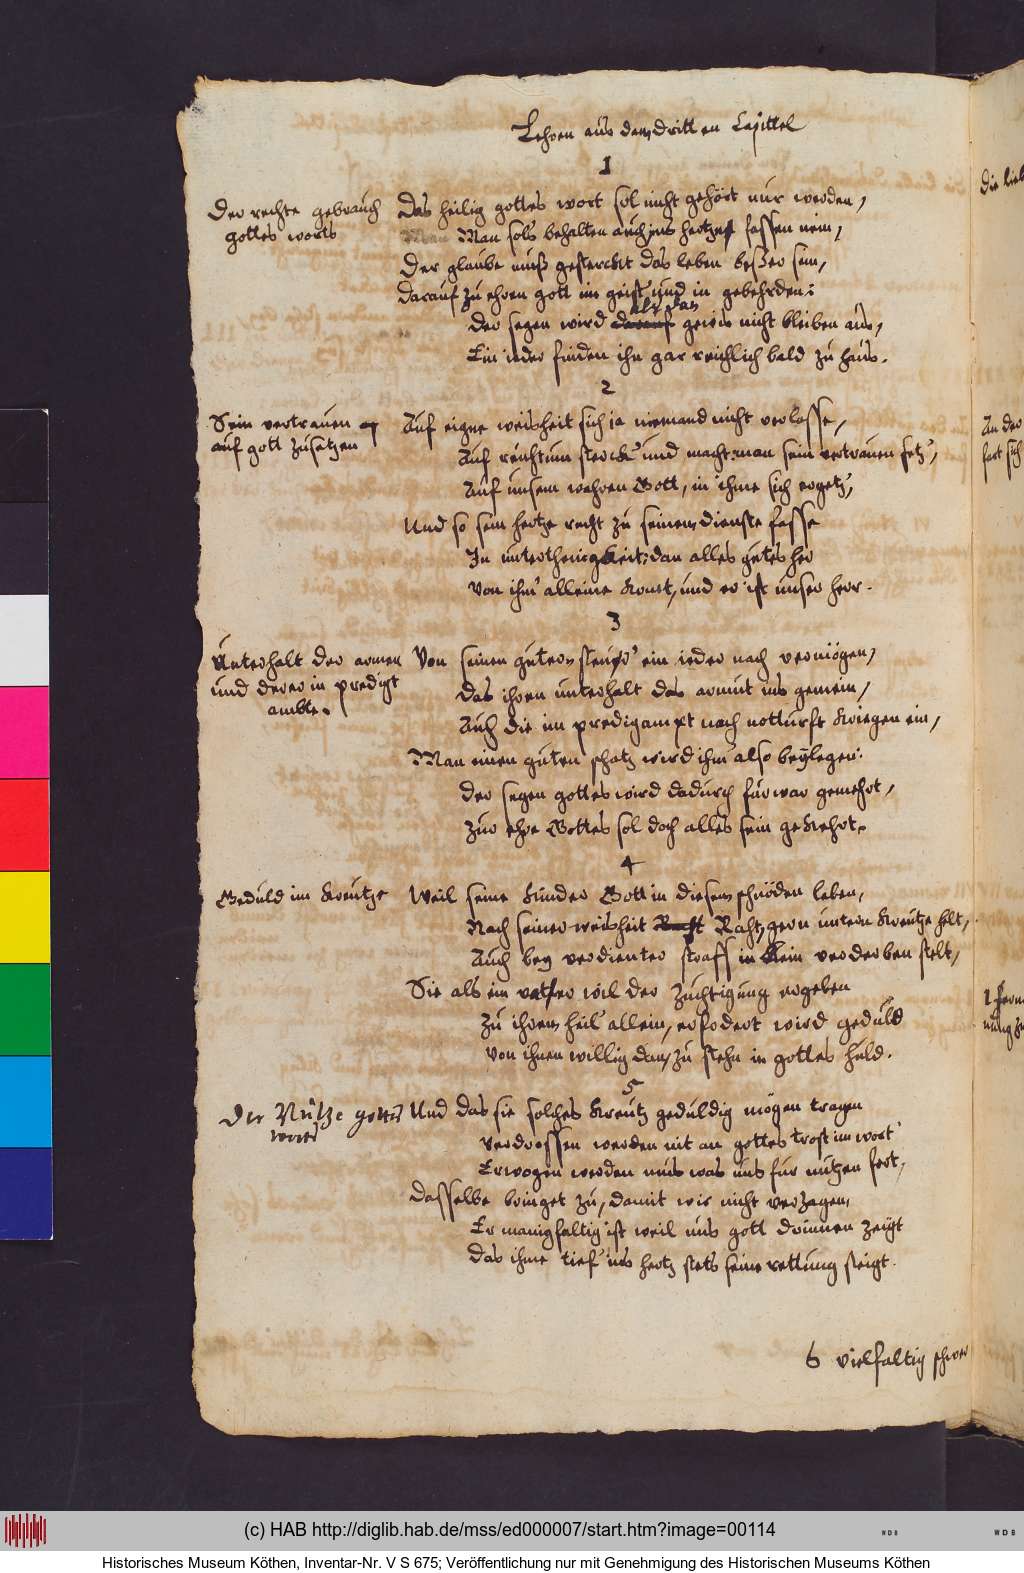 Lehren aus dem dritten Capittel
1
Der rechte gebrauch
gottes worts
Das heilig gottes wort sol nicht gehört nur werden,
Man sols behalten auch, ins hertze fassen nein,
Der glaube muß gesterckt das leben beßer sein,
Darauf zu ehren gott im geist und in gebehrden:
alsdan
Der segen wird darauf gewis nicht bleiben aus,
Ein ieder finden ihn gar reichlich bald zu haus.
2
Sein vertrauen
auf gott zusetzen
Auf eigne weisheit sich ia niemand nicht verlasse,
Auf reichtum sterck' und macht: man sein vertrauen setz',
Auf unsern wahren Gott, in ihme sich ergetz',
Und so sein hertze recht zu seinem dienste fasse
In unterthenigkeit: dan alles gutes her
Von ihm' alleine komt, und er ist unser herr.
3
Unterhalt der armen
und derer in predigt
ambte.
Von seinen gutern steur' ein ieder nach vermögen,
Das ihren unterhalt das armut ins gemein,
Auch die im predigampt nach notturft kriegen ein,
Man einen guten schatz wird ihm also beylegen:
Der segen gottes wird dadurch furwar gemehrt,
Zur ehre Gottes sol doch alles sein gekehrt.
4
Geduld im Kreutze
Weil seine kinder Gott in diesem schnöden leben,
Nach seiner weisheit Raht, gern unterm kreutze helt,
Auch bey verdienter straff in kein verderben stelt,
Sie als ein vatter wil der züchtigung ergeben
Zu ihrem heil allein, erfodert wird geduld
Von ihnen willig dan, zu stehn in gottes huld.
5
Der Nutze gottes
wort
Und das sie solches kreutz geduldig mögen tragen
Verdrossen werden nit an gottes trost im wort'
Erwogen werden mus was uns fur nutzen fort,
Dasselbe bringet zu, damit wir nicht verzagen,
Er manigfaltig ist weil uns gott drinnen zeigt
Das ihme tief ins hertz stets seine rettung steigt.
6 vielfaltig schwer
(c) HAB http://diglib.hab.de/mss/ed000007/start.htm?image=00114
WDB
WDB
Historisches Museum Köthen, Inventar-Nr. V S 675; Veröffentlichung nur mit Genehmigung des Historischen Museums Köthen